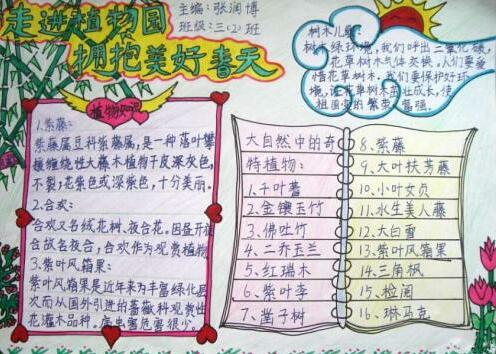 走进植物园
拥抱美好春天
主编：张润博
班级：三(2)班
树木儿歌：
树木绿环境，我们呼出二氧化碳，
花草树木气体交换。人们要爱
惜花草树木，我们要保护好环
境，让花草树木茁壮成长，使
祖国变的繁荣富强。
植物知识
1.紫藤：
紫藤属豆科紫藤属，是一种落叶攀
援缠绕性大藤木植物干皮深灰色，
不裂；花紫色或深紫色，十分美丽。
2.合欢：
合欢又名绒花树、夜合花。因昼开夜
合故名夜合，合欢作为观赏植物
3.紫叶风箱果：
紫叶风箱果是近年来为丰富绿化层
次而从国外引进的蔷薇科观赏性
花灌木品种。病虫害危害很少。
大自然中的奇
特植物：
1.千叶蓍
2.金镶玉竹
3.佛吐竹
4.二乔玉兰
5.红瑞木
6.紫叶李
7.凿子树
8.紫藤
9.大叶扶芳藤
10.小叶女贞
11.水生美人藤
12.大白雪
13.紫叶风箱果
14.三角枫
15.检阅
16.琳马克